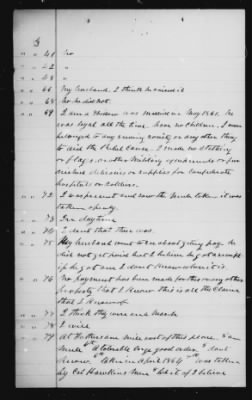 3
" " 41 No
" " 42 "
" " 43 "
" " 66 My husband. I think he owned it
" " 68 No he did not.
" " 69 I am a widow was married in May 1861. He
was loyal all the time. have no children. I never
belonged to any sewing society or any other thing
to aid the Rebel Cause. I made no clothing
or flags, or other Military equipments or fur
nished delicacies or supplies for Confederate
hospital or soldiers.
" " 72 I was present and saw the Mule taken it was
taken openly.
" " 73 In daytime
" " 74 I dont think there was.
" " 75 My husband went to see about getting pay. he
did not get paid but I believe he got a receipt
" " 76 No payment has been made for this or any other
property that I know of this is all the Claim
that I know of
" " 77 I think they were and Mark
" " 78 I will
" " 79 At Patterson's mill east of this place. " one
Mule " tolerable large good order " dont
know " taken in April 1864 " was taken
by Col Hawkins Men " what I believe